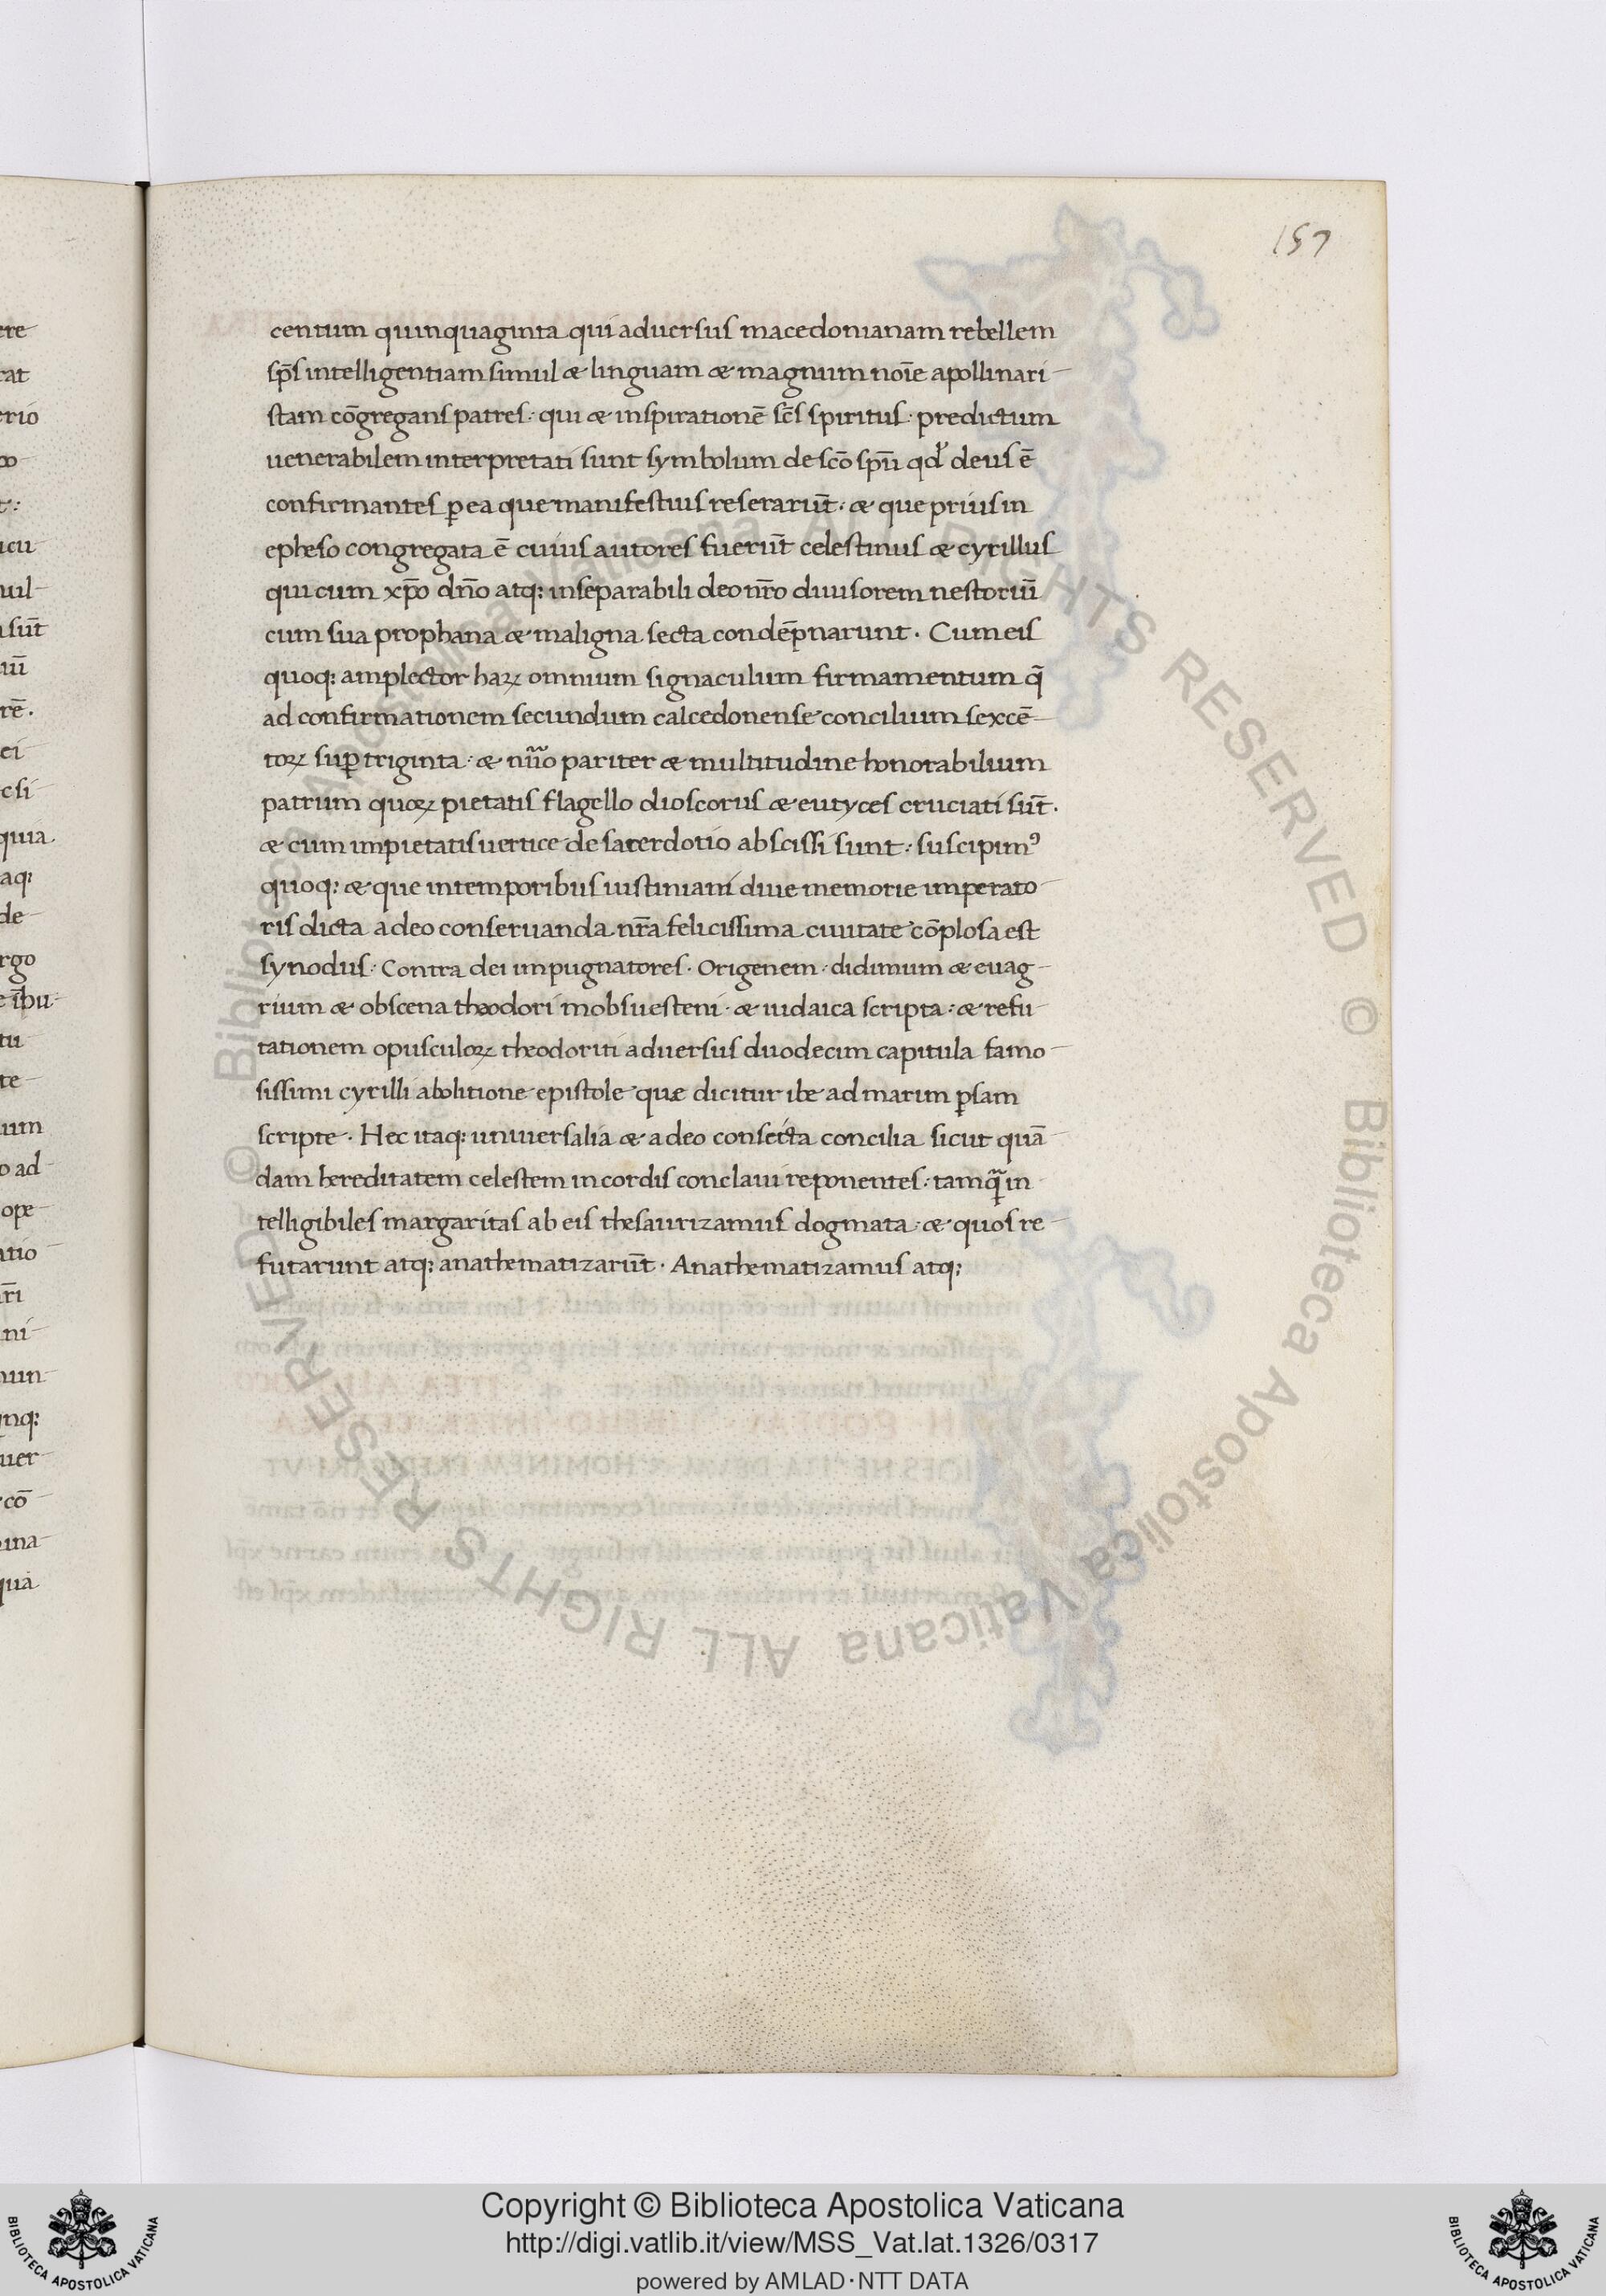 157
centum quinquaginta qui aduersus macedonianam rebellem
sp̄s intelligentiam simul & linguam & magnum noīe apollinari
stam cōgregans patres: qui & inspirationē sc̄s spiritus· predictum
uenerabilem interpretati sunt symbolum de scō spū qd' deus ē
confirmantes p ea que manifestius reserarūt: & que prius in
epheso congregata ē cuius autores fuerūt celestinus & cyrillus
qui cum xp̄o dn̄o atq: inseparabili deo nr̄o diuisorem nestoriū
cum sua prophana & maligna secta condēpnarunt. Cum eis
quoq: amplector haꝝ omnium signaculum firmamentum q̄
ad confirmationem secundum calcedonense concilium sexcē
toꝝ sup triginta: & nūo pariter & multitudine honorabilium
patrum quoꝝ pietatis flagello dioscorus & eutyces cruciati sūt.
& cum impietatis uertice de sacerdotio abscissi sunt: suscipimꝰ
quoq: & que in temporibus iustiniani diue memorie imperato
ris dicta a deo conseruanda nr̄a felicissima ciuitate cōplosa est
synodus: Contra dei impugnatores. Origenem: didimum & euag
rium & obscena theodori mobsuesteni· & iudaica scripta: & refu
tationem opusculoꝝ theodoriti aduersus duodecim capitula famo
sissimi cyrilli abolitione epistole quæ dicitur ibe ad marim psam
scripte. Hec itaq: uniuersalia & a deo consecta concilia sicut quā
dam hereditatem celestem in cordis conclaui reponentes: tamq̄ in
telligibiles margaritas ab eis thesaurizamus dogmata: & quos re
futarunt atq: anathematizarūt. Anathematizamus atq:
ere
rat
erio
ucu
sūt
rē.
ei
quia
aq:
de
rgo
tu
te
o ad
ope
atio
ni
inq:
uer
cō
ina
© Biblioteca Apostolica Vaticana ALL RIGHTS RESERVED © Biblioteca Apostolica Vaticana ALL RIGHTS RESERVED
Copyright © Biblioteca Apostolica Vaticana
http://digi.vatlib.it/view/MSS_Vat.lat.1326/0317
powered by AMLAD·NTT DATA
BIBLIOTECA APOSTOLICA VATICANA
BIBLIOTECA APOSTOLICA VATICANA